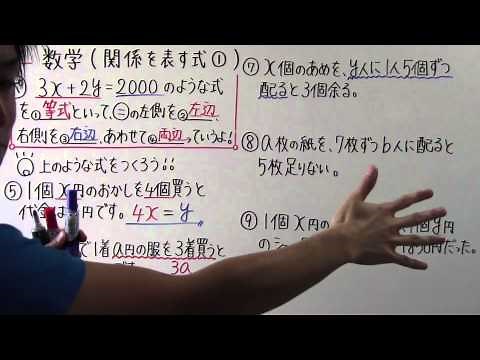 数学（関係を表す式①）
3x+2y=2000のような式
を①等式といって、㊁の左側を②左辺、
右側を③右辺、あわせて④両辺っていうよ!
上のような式をつくろう!!
⑤1個x円のおかしを4個買うと
代金は 円です。 4x=y
で1着a円の服を3着買うと
3a
⑦x個のあめを、y人に1人5個ずつ
配ると3個余る。
⑧a枚の紙を、7枚ずつb人に配ると
5枚足りない。
⑨1個x円の 個y円
の 円だった。